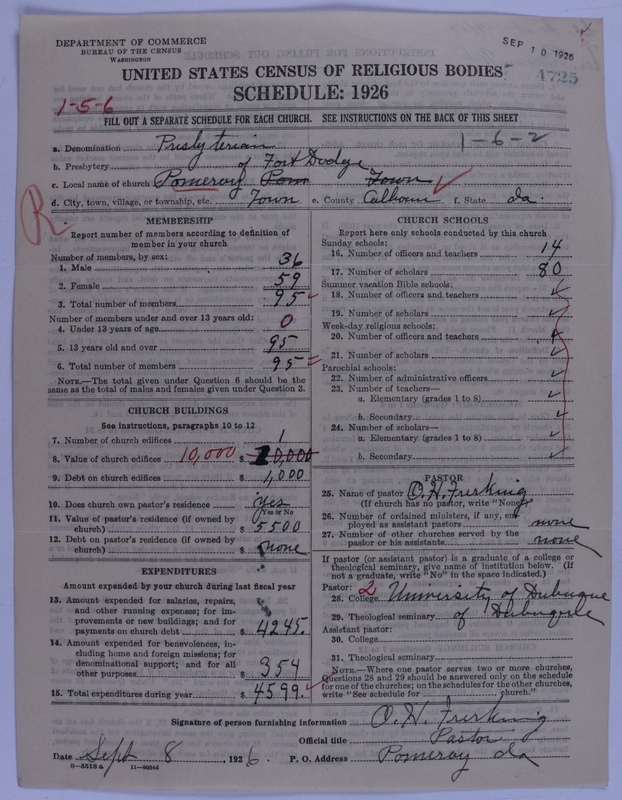 DEPARTMENT OF COMMERCE
BUREAU OF THE CENSUS
WASHINGTON
SEP 10 1926
4725
UNITED STATES CENSUS OF RELIGIOUS BODIES
SCHEDULE: 1926
1-5-6
FILL OUT A SEPARATE SCHEDULE FOR EACH CHURCH. SEE INSTRUCTIONS ON THE BACK OF THIS SHEET
1-6-2
a. Denomination Presbyterian
b. Presbytery of Fort Dodge
c. Local name of church Pomeroy Pom Town
d. City, town, village, or township, etc. Town e. County Calhoun f. State Ia.
R
MEMBERSHIP
Report number of members according to definition of member in your church
Number of members, by sex:
1. Male 36
2. Female 59
3. Total number of members 95
Number of members under and over 13 years old:
4. Under 13 years of age 0
5. 13 years old and over 95
6. Total number of members 95
NOTE.—The total given under Question 6 should be the
same as the total of males and females given under Question 3.
CHURCH BUILDINGS
See instructions, paragraphs 10 to 12
7. Number of church edifices 1
8. Value of church edifices 10,000 $ 10,000
9. Debt on church edifices $ 1,000
10. Does church own pastor's residence yes
Yes or No
11. Value of pastor's residence (if owned by
church) $ 5500
12. Debt on pastor's residence (if owned by
church) $ none
EXPENDITURES
Amount expended by your church during last fiscal year
13. Amount expended for salaries, repairs,
and other running expenses; for im-
provements or new buildings; and for
payments on church debt $ 4245.
14. Amount expended for benevolences, in-
cluding home and foreign missions; for
denominational support; and for all
other purposes $ 354
15. Total expenditures during year $ 4599.
CHURCH SCHOOLS
Report here only schools conducted by this church
Sunday schools:
16. Number of officers and teachers 14
17. Number of scholars 80
Summer vacation Bible schools:
18. Number of officers and teachers
19. Number of scholars
Week-day religious schools:
20. Number of officers and teachers
21. Number of scholars
Parochial schools:
22. Number of administrative officers
23. Number of teachers—
a. Elementary (grades 1 to 8)
b. Secondary
24. Number of scholars—
a. Elementary (grades 1 to 8)
b. Secondary
PASTOR
25. Name of pastor O. H. Frerking
(If church has no pastor, write "None")
26. Number of ordained ministers, if any, em-
ployed as assistant pastors none
27. Number of other churches served by the
pastor or his assistants none
If pastor (or assistant pastor) is a graduate of a college or
theological seminary, give name of institution below. (If
not a graduate, write "No" in the space indicated.)
Pastor: 2
28. College University of Dubuque
29. Theological seminary of Dubuque
Assistant pastor:
30. College
31. Theological seminary
NOTE.—Where one pastor serves two or more churches,
Questions 28 and 29 should be answered only on the schedule
for one of the churches; on the schedules for the other churches,
write "See schedule for church."
Signature of person furnishing information O. H. Frerking
Official title Pastor
Date Sept 8, 1926. P. O. Address Pomeroy Ia
8-5518 a